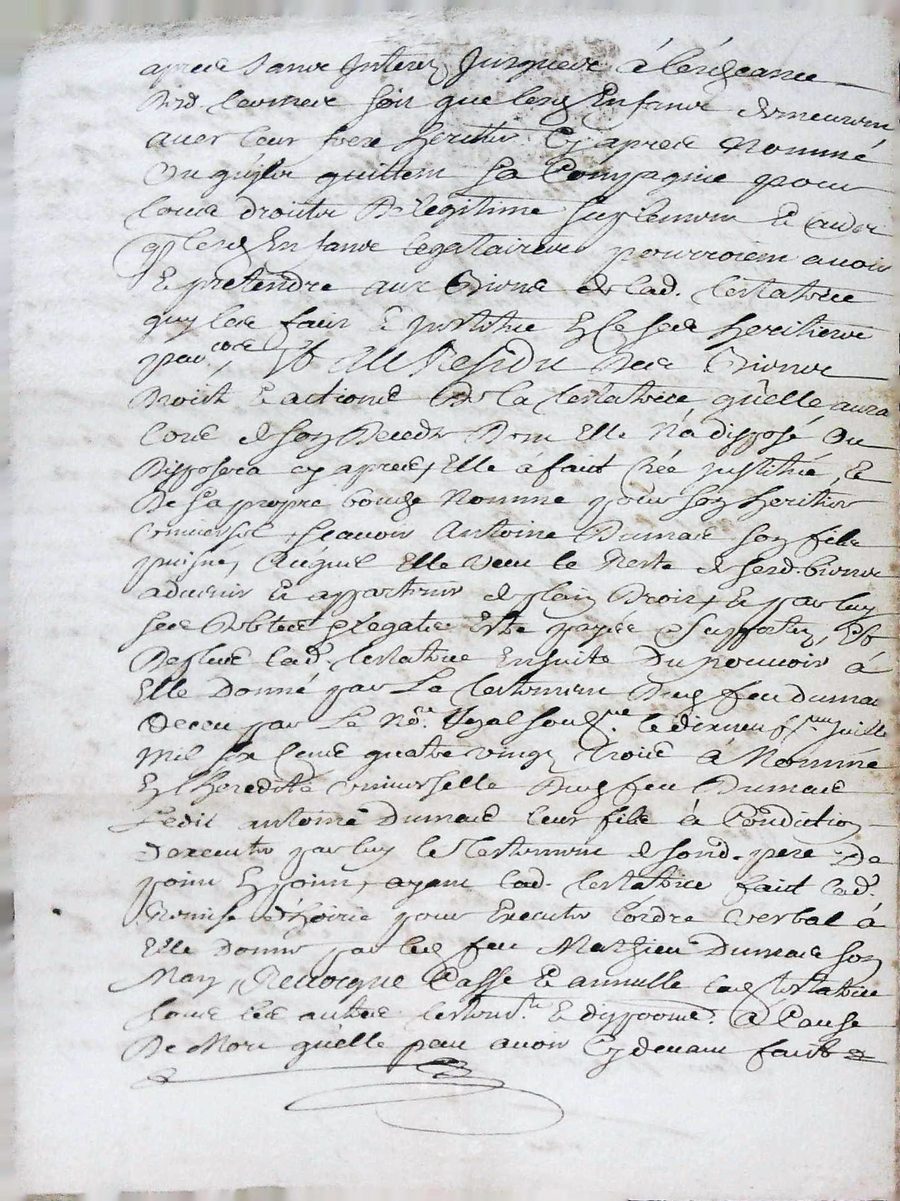 apres sans Interez Jusques à lexigeance
soit que lesd Enfans demeurem
avec leur frere heritier Cy apres Nommé
Ou quils quittem sa Compagnie pour
tous droits De legitime suplemem & autre
q lesd Enfans legataires pourroiem avoir
& pretendre aux Biens de lad. testatrice
quy les fait & Institue en ce ses heritiers
par Et Au Residu Des Biens
Noms & actions de la testatrice quelle aura
lors de son Deceds Dom Elle Na disposé Ou
Disposera cy apres, Elle à fait Créé Institué, &
De sa propre bouche Nommé pour son heritier
universel scavoir Antoine Dumas son filz
puisné, Auquel Elle veut le Reste de sesd. biens
advenir & appartenir de plain Droit, & par luy
ses Debtes & legats Estre payés & supportez, Et
De plus lad. testatrice Ensuite Du pouvoir à
Elle Donné par Le testamem Dud feu dumas
Receu par Le No.re soubsig.ne le dixneuf.me Juillet
Mil six Cens quatre vingt trois à Nommé
En lheredité universelle Dud feu Dumas
Ledit antoine Dumas leur filz à Condition
dexecuter par luy le Testamem de sond. pere De
poim En poim, ayam lad. testatrice fait lad.
Remise dhoirie pour Executer lordre verbal à
Elle Donné par led feu Mathieu Dumas son
Mary, Revocque Casse & annulle lad testatrice
tous les autres testam.ts & dispoons. à Cause
De Mort quelle peut avoir Cy devam faits